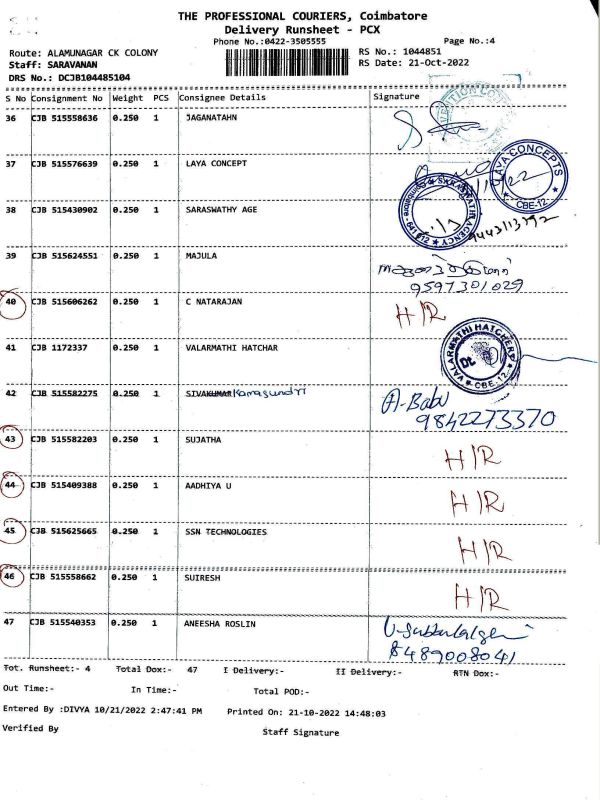 THE PROFESSIONAL COURIERS, Coimbatore
Delivery Runsheet - PCX
Phone No.:0422-3505555 Page No.:4
Route: ALAMUNAGAR CK COLONY RS No.: 1044851
Staff: SARAVANAN RS Date: 21-Oct-2022
DRS No.: DCJB104485104
S No Consignment No Weight PCS Consignee Details Signature
36 CJB 515558636 0.250 1 JAGANATAHN
37 CJB 515576639 0.250 1 LAYA CONCEPT
LAYA CONCEPTS
CBE-12
38 CJB 515430902 0.250 1 SARASWATHY AGE
9443113792
39 CJB 515624551 0.250 1 MAJULA
9597301029
40 CJB 515606262 0.250 1 C NATARAJAN H/R
41 CJB 1172337 0.250 1 VALARMATHI HATCHAR
VALARMATHI HATCHERY
CBE-12
42 CJB 515582275 0.250 1 SIVAKUMAR A-Babu
9842273370
43 CJB 515582203 0.250 1 SUJATHA H/R
44 CJB 515409388 0.250 1 AADHIYA U H/R
45 CJB 515625665 0.250 1 SSN TECHNOLOGIES H/R
46 CJB 515558662 0.250 1 SUIRESH H/R
47 CJB 515540353 0.250 1 ANEESHA ROSLIN
8489008041
Tot. Runsheet:- 4 Total Dox:- 47 I Delivery:- II Delivery:- RTN Dox:-
Out Time:- In Time:- Total POD:-
Entered By :DIVYA 10/21/2022 2:47:41 PM Printed On: 21-10-2022 14:48:03
Verified By Staff Signature